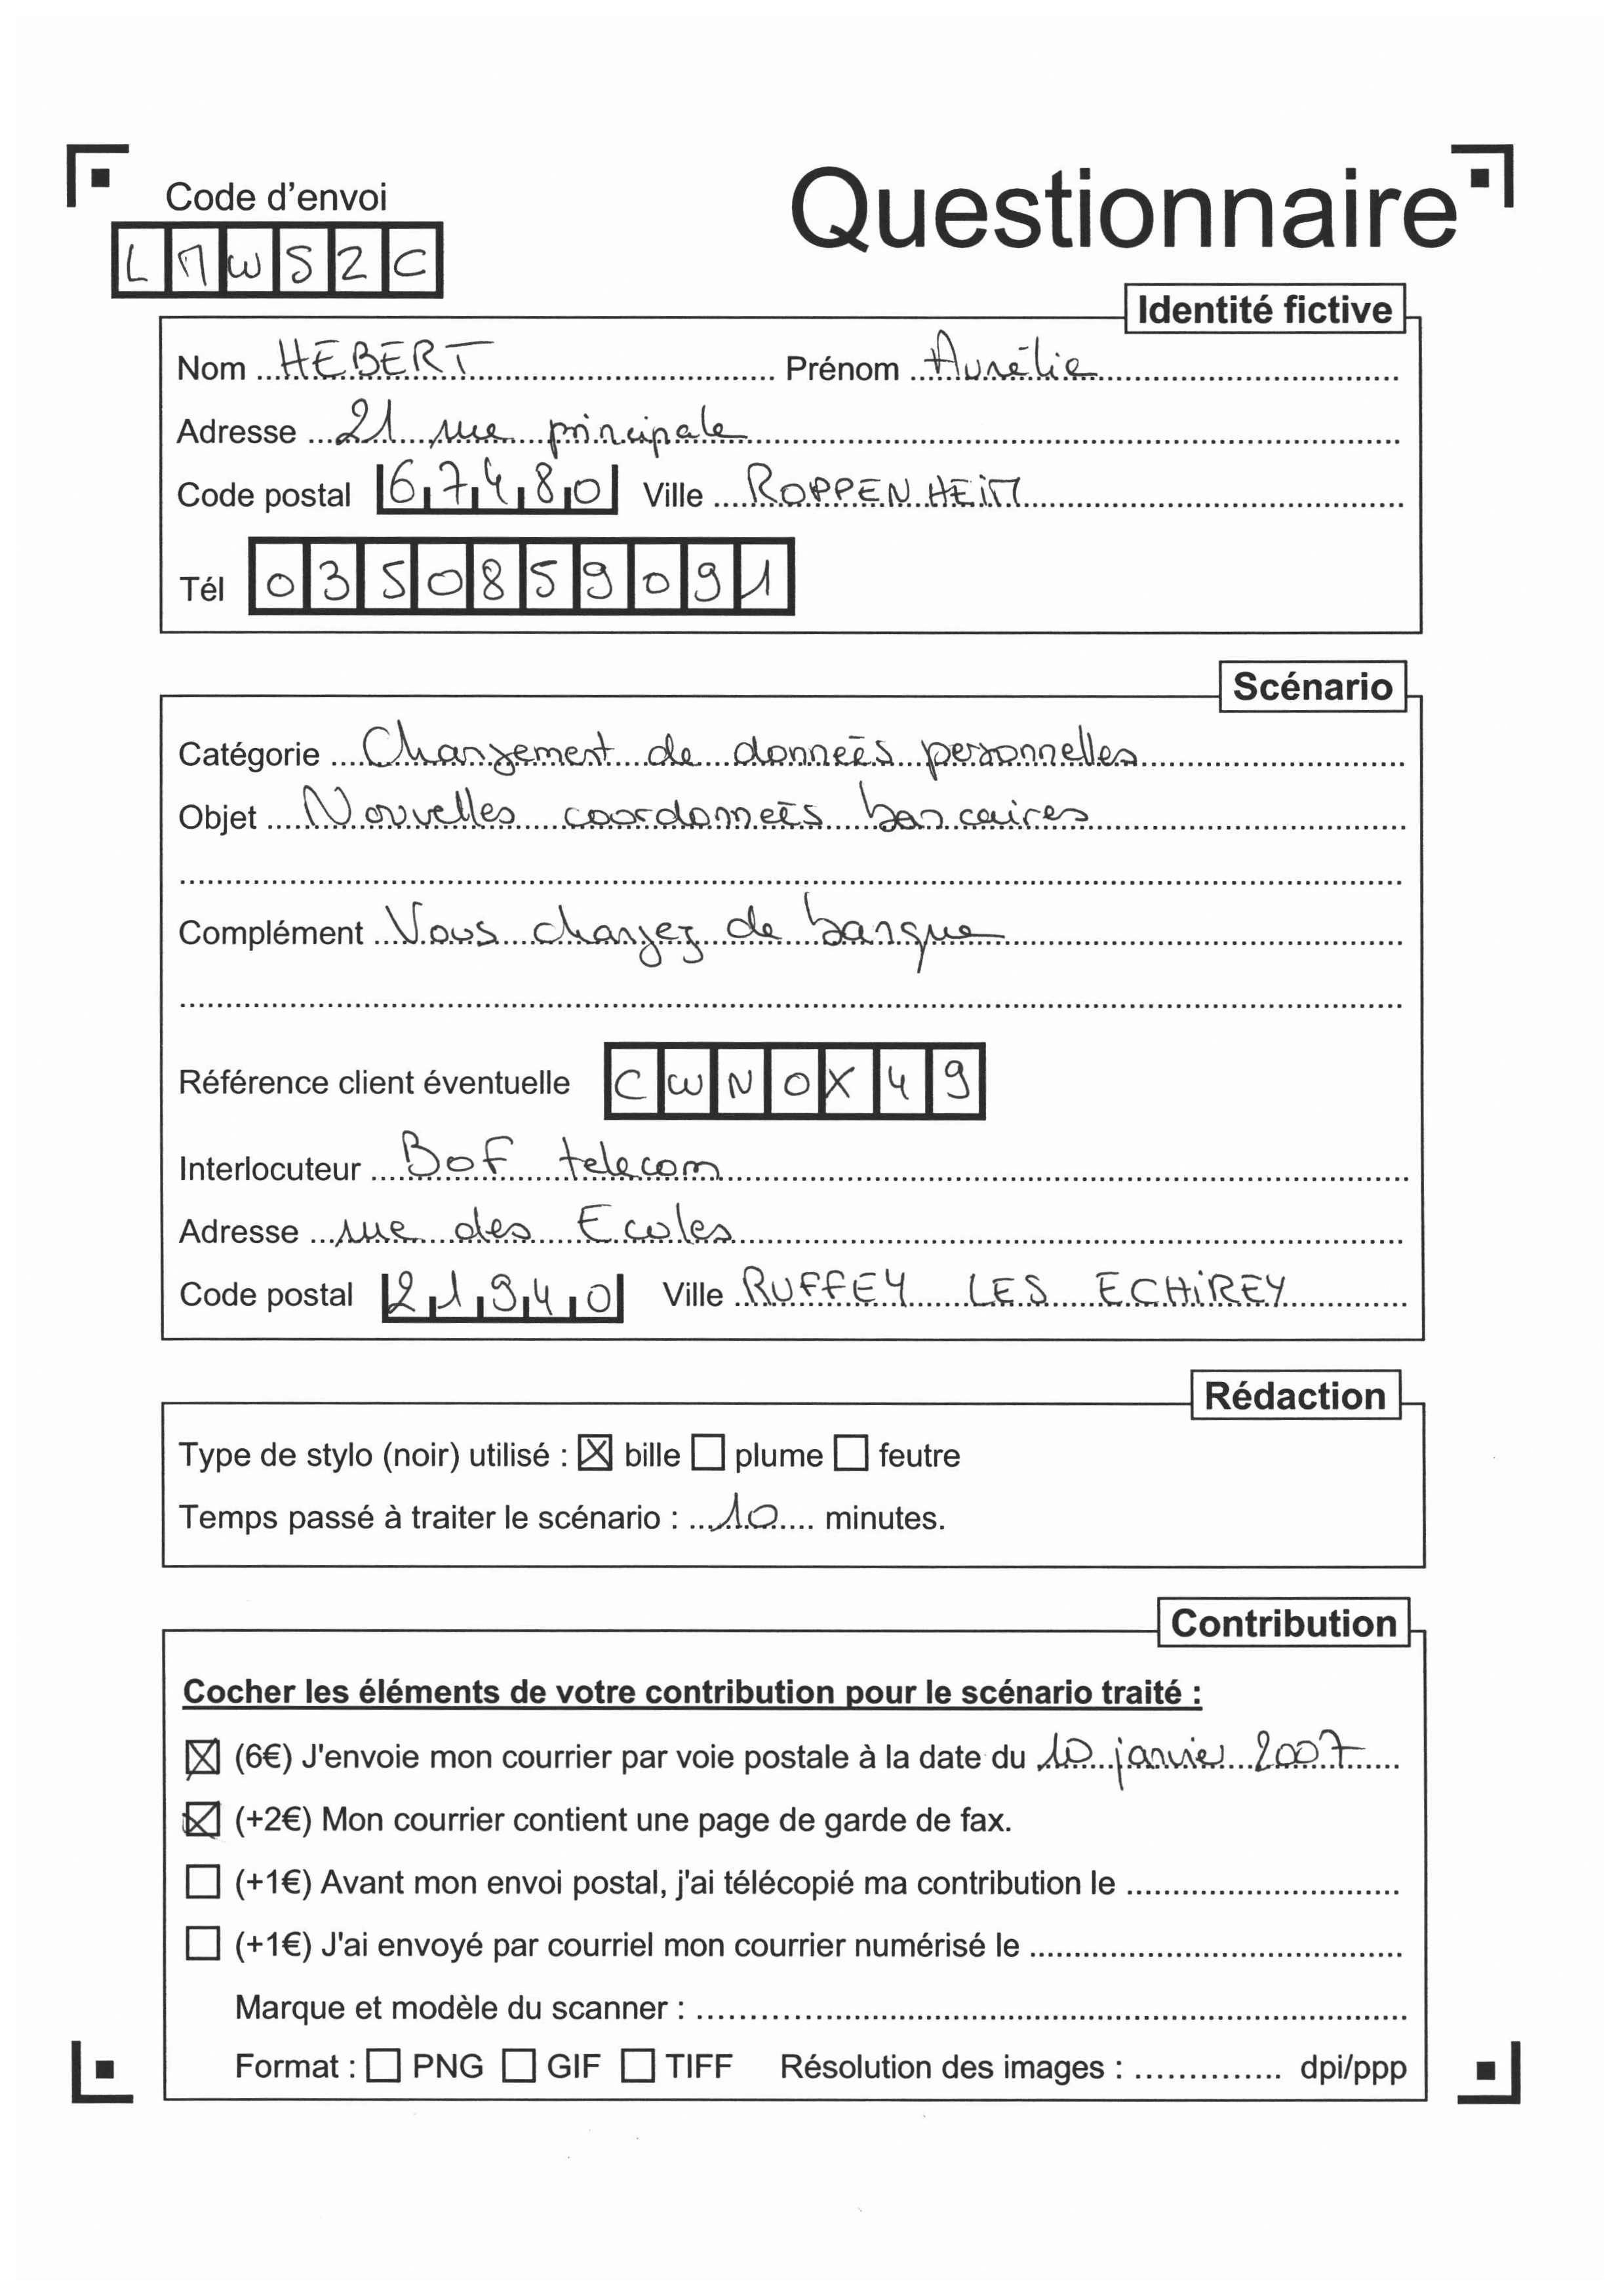 Code d'envoi
Questionnaire
LMWS2C
Identité fictive
Nom HEBERT Prénom Aurélie
Adresse 21 rue principale
Code postal 67480 Ville ROPPENHEIM
Tél 0350859091
Scénario
Catégorie Changement de données personnelles
Objet Nouvelles coordonneés bancaires
Complément Vous changez de banque
Référence client éventuelle CWNOX49
Interlocuteur BoF telecom
Adresse rue des Ecoles
Code postal 21940 Ville RUFFEY LES ECHIREY
Rédaction
Type de stylo (noir) utilisé : ☒ bille ☐ plume ☐ feutre
Temps passé à traiter le scénario : 10 minutes.
Contribution
Cocher les éléments de votre contribution pour le scénario traité :
☒ (6€) J'envoie mon courrier par voie postale à la date du 10 janvier 2007
☒ (+2€) Mon courrier contient une page de garde de fax.
☐ (+1€) Avant mon envoi postal, j'ai télécopié ma contribution le
☐ (+1€) J'ai envoyé par courriel mon courrier numérisé le
Marque et modèle du scanner :
Format : ☐ PNG ☐ GIF ☐ TIFF Résolution des images : dpi/ppp